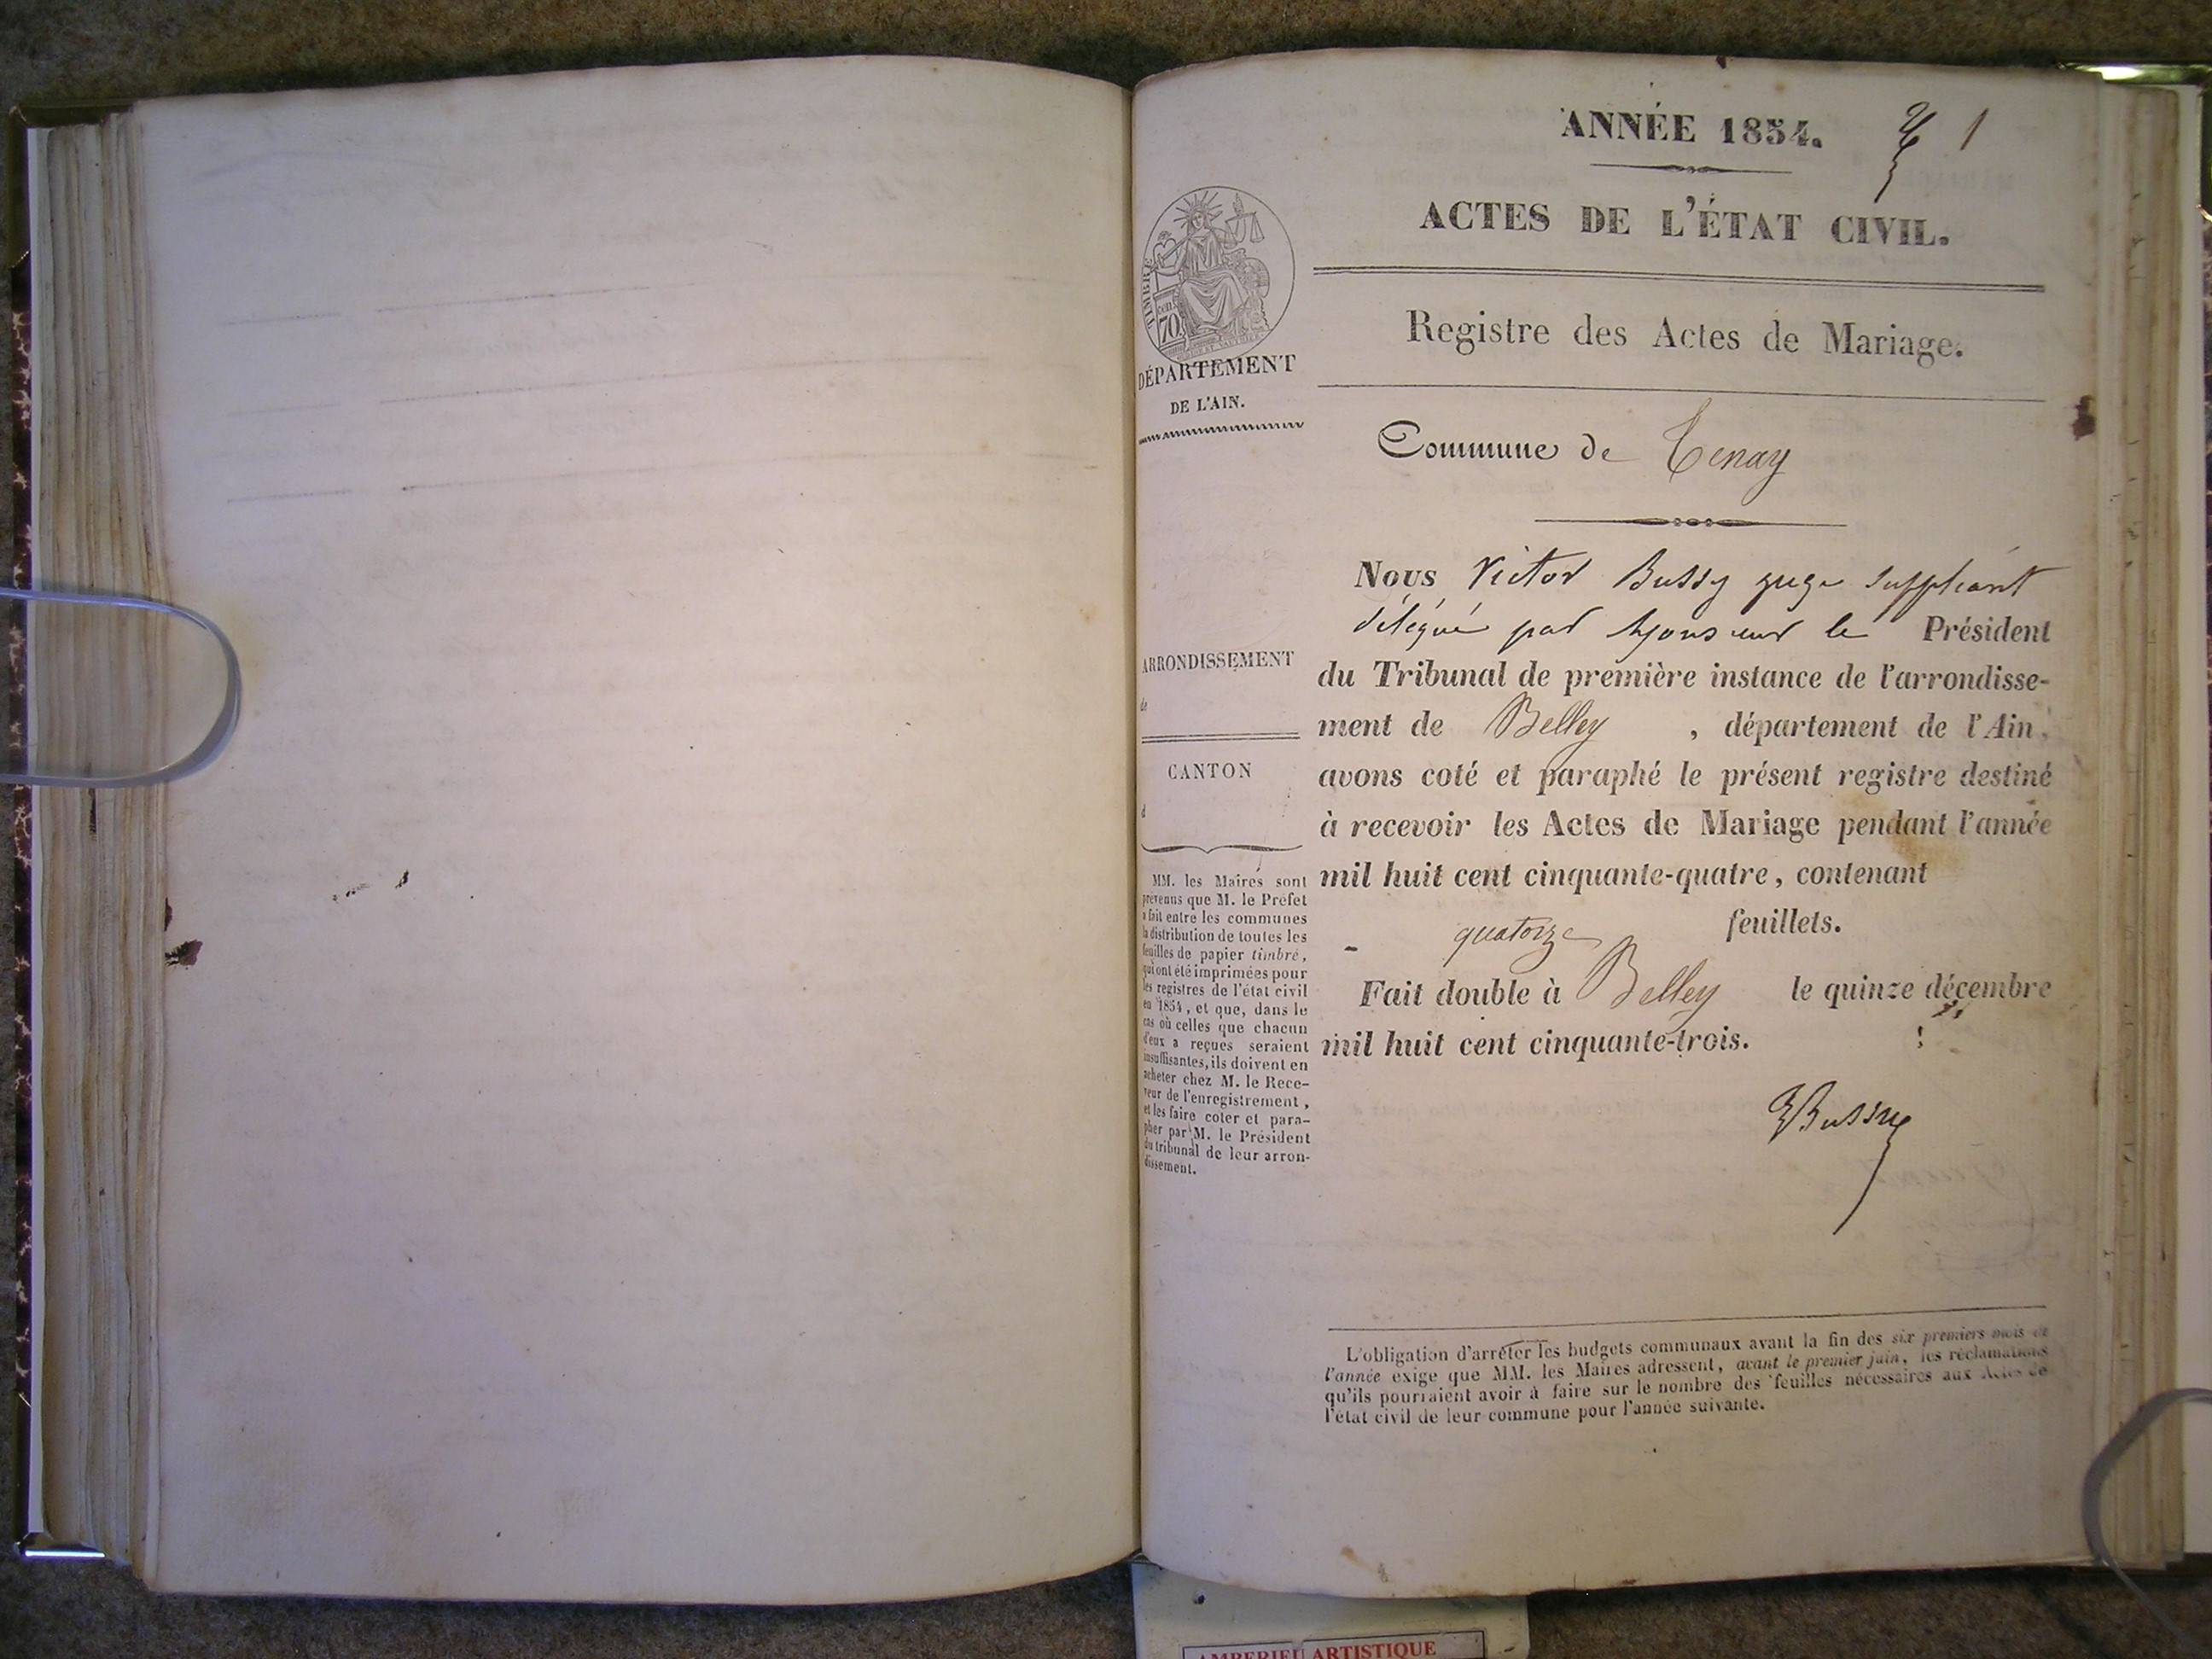 ANNÉE 1854. 1
ACTES DE L'ÉTAT CIVIL.
TIMBRE
70
DÉPARTEMENT
DE L'AIN.
Registre des Actes de Mariage.
Commune de Tenay
Nous Victor Bussy juge suppléant
délégué par Monsieur le Président
du Tribunal de première instance de l'arrondisse-
ment de Belley , département de l'Ain,
avons coté et paraphé le présent registre destiné
à recevoir les Actes de Mariage pendant l'année
mil huit cent cinquante-quatre, contenant
quatorze feuillets.
Fait double à Belley le quinze décembre
mil huit cent cinquante-trois.
Bussy
ARRONDISSEMENT
de
CANTON
d
MM. les Maires sont
prévenus que M. le Préfet
a fait entre les communes
la distribution de toutes les
feuilles de papier timbré,
qui ont été imprimées pour
les registres de l'état civil
en 1854, et que, dans le
cas où celles que chacun
d'eux a reçues seraient
insuffisantes, ils doivent en
acheter chez M. le Rece-
veur de l'enregistrement,
et les faire coter et para-
pher par M. le Président
du tribunal de leur arron-
dissement.
L'obligation d'arrêter les budgets communaux avant la fin des six premiers mois de
l'année exige que MM. les Maires adressent, avant le premier juin, les réclamations
qu'ils pourraient avoir à faire sur le nombre des feuilles nécessaires aux Actes de
l'état civil de leur commune pour l'année suivante.
AMBERIEU ARTISTIQUE